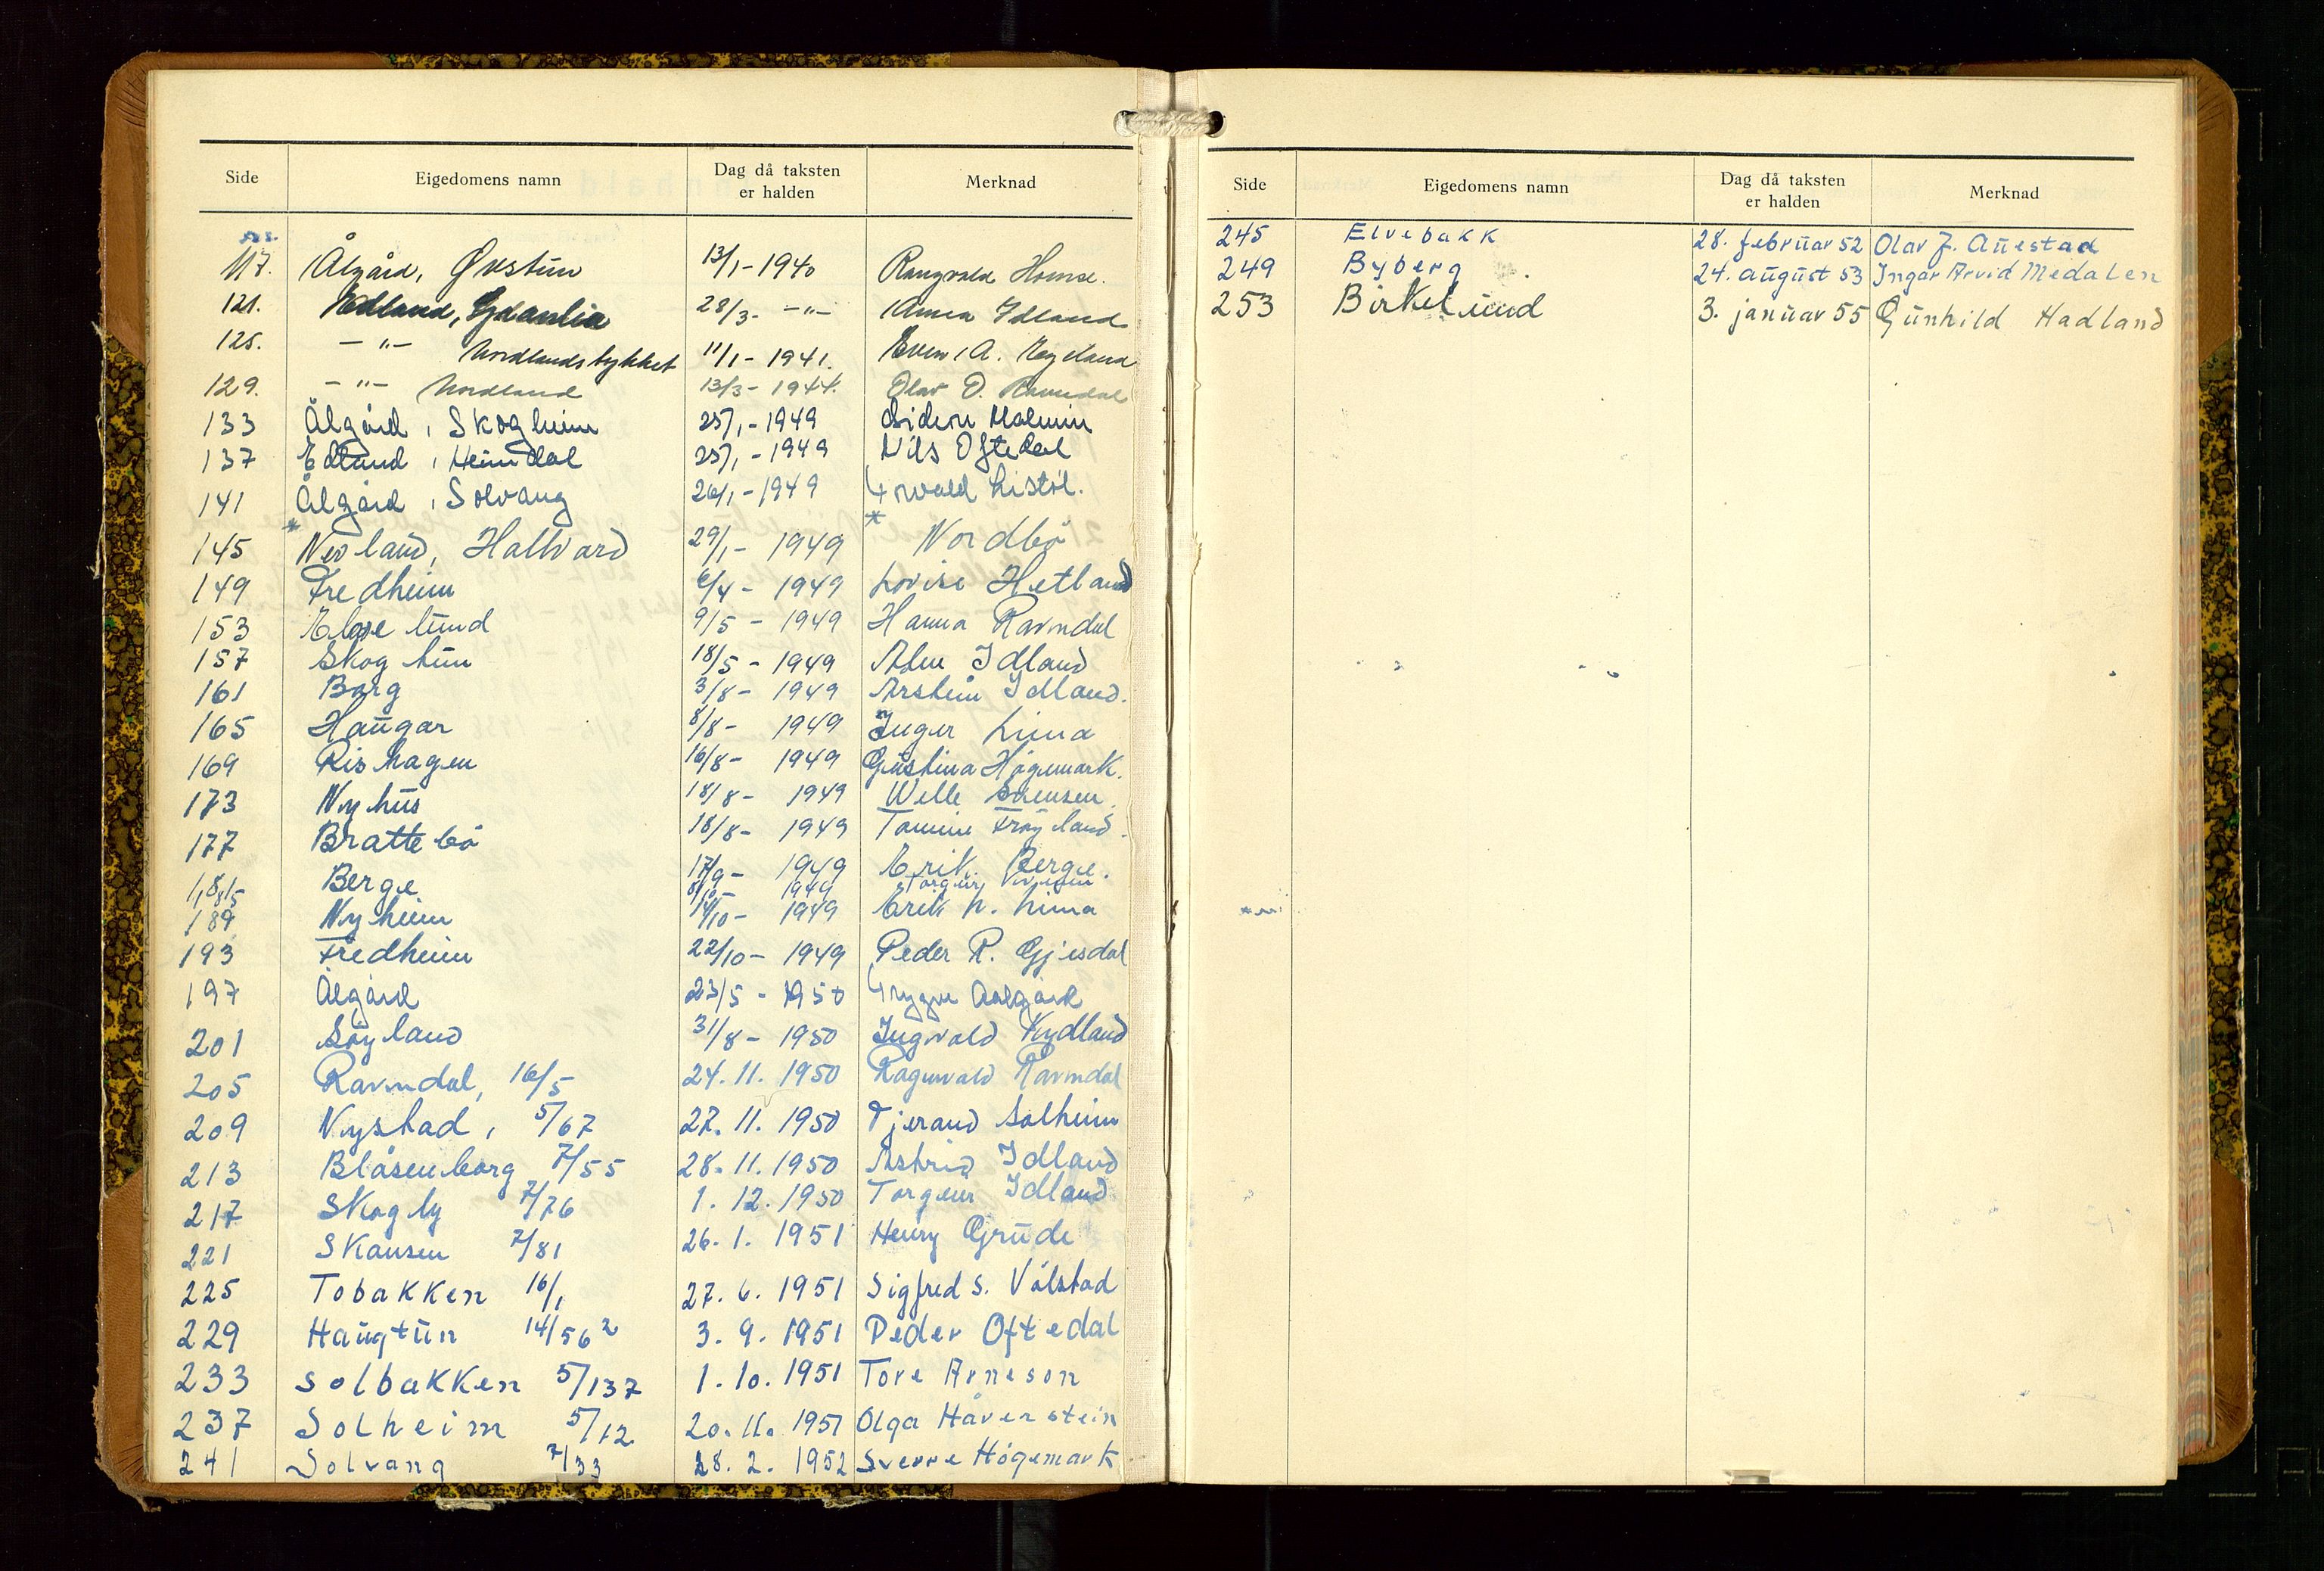 Side Eigedomens namn Dag då taksten er halden Merknad
117. Ålgård, Øvstun 13/1-1940 Rangvald Homse.
121. Edland, 28/3- -"- Anna Idland
125. -"- Nordlandstykket 11/1-1941. Even A.
129. -"- Nordland 13/3-1944. Olav O. Ravndal
133 Ålgård, Skogheim 25/1-1949 Malmin
137 Edland, Heimdal 25/1-1949 Nils Oftedal
141 Ålgård, Solvang 26/1-1949 Torvald Listøl.
* *
145 Nevland, Hallvard 29/1- 1949 Nordbö
149 Fredheim 6/4- 1949 Lovise Hetland
153 Elvelund 9/5- 1949 Hanna Ravndal
157 Skogtun 18/5- 1949 Idland
161 Borg 3/8- 1949 Arstein Idland.
165 Haugar 8/8- 1949 Inger Lima
169 Rishagen 16/8- 1949 Gustina Högemark.
173 Nyhus 18/8- 1949 Welle Sørensen.
177 Brattebö 18/8- 1949 Tomine Fröyland.
181 Berge 17/9- 1949 Erik Berge.
185 8/10- 1949 Torger
189 Nyheim 14/10- 1949 Erik L. Lima
193 Fredheim 22/10- 1949 Peder R. Gjesdal
197 Ålgård 23/5- 1950 Trygve Aalgård
201 Söyland 31/8- 1950 Ingvald Kydland
205 Ravndal, 16/5 24.11.1950 Ragnvald Ravndal
209 Nystad, 5/67 27.11.1950 Tjerand Solheim
213 Blåsenborg 7/55 28.11.1950 Astrid Idland
217 Skogly 7/76 1.12.1950 Torgeir Idland
221 Skansen 7/81 26.1.1951 Henry Grude
225 Tobakken 16/1 27.6.1951 Sigfred S. Vålstad
229 Haugtun 14/56² 3.9.1951 Peder Oftedal
233 Solbakken 5/137 1.10.1951 Tore Arneson
237 Solheim 5/12 20.11.1951 Olga Håvenstein
241 Solvang 7/33 28.2.1952 Sverre Högemark
Side Eigedomens namn Dag då taksten er halden Merknad
245 Elvebakk 28. februar 52 Olav J. Auestad
249 Byberg 24. august 53 Ingar Arvid Medalen
253 Birkelund 3. januar 55 Gunhild Hadland